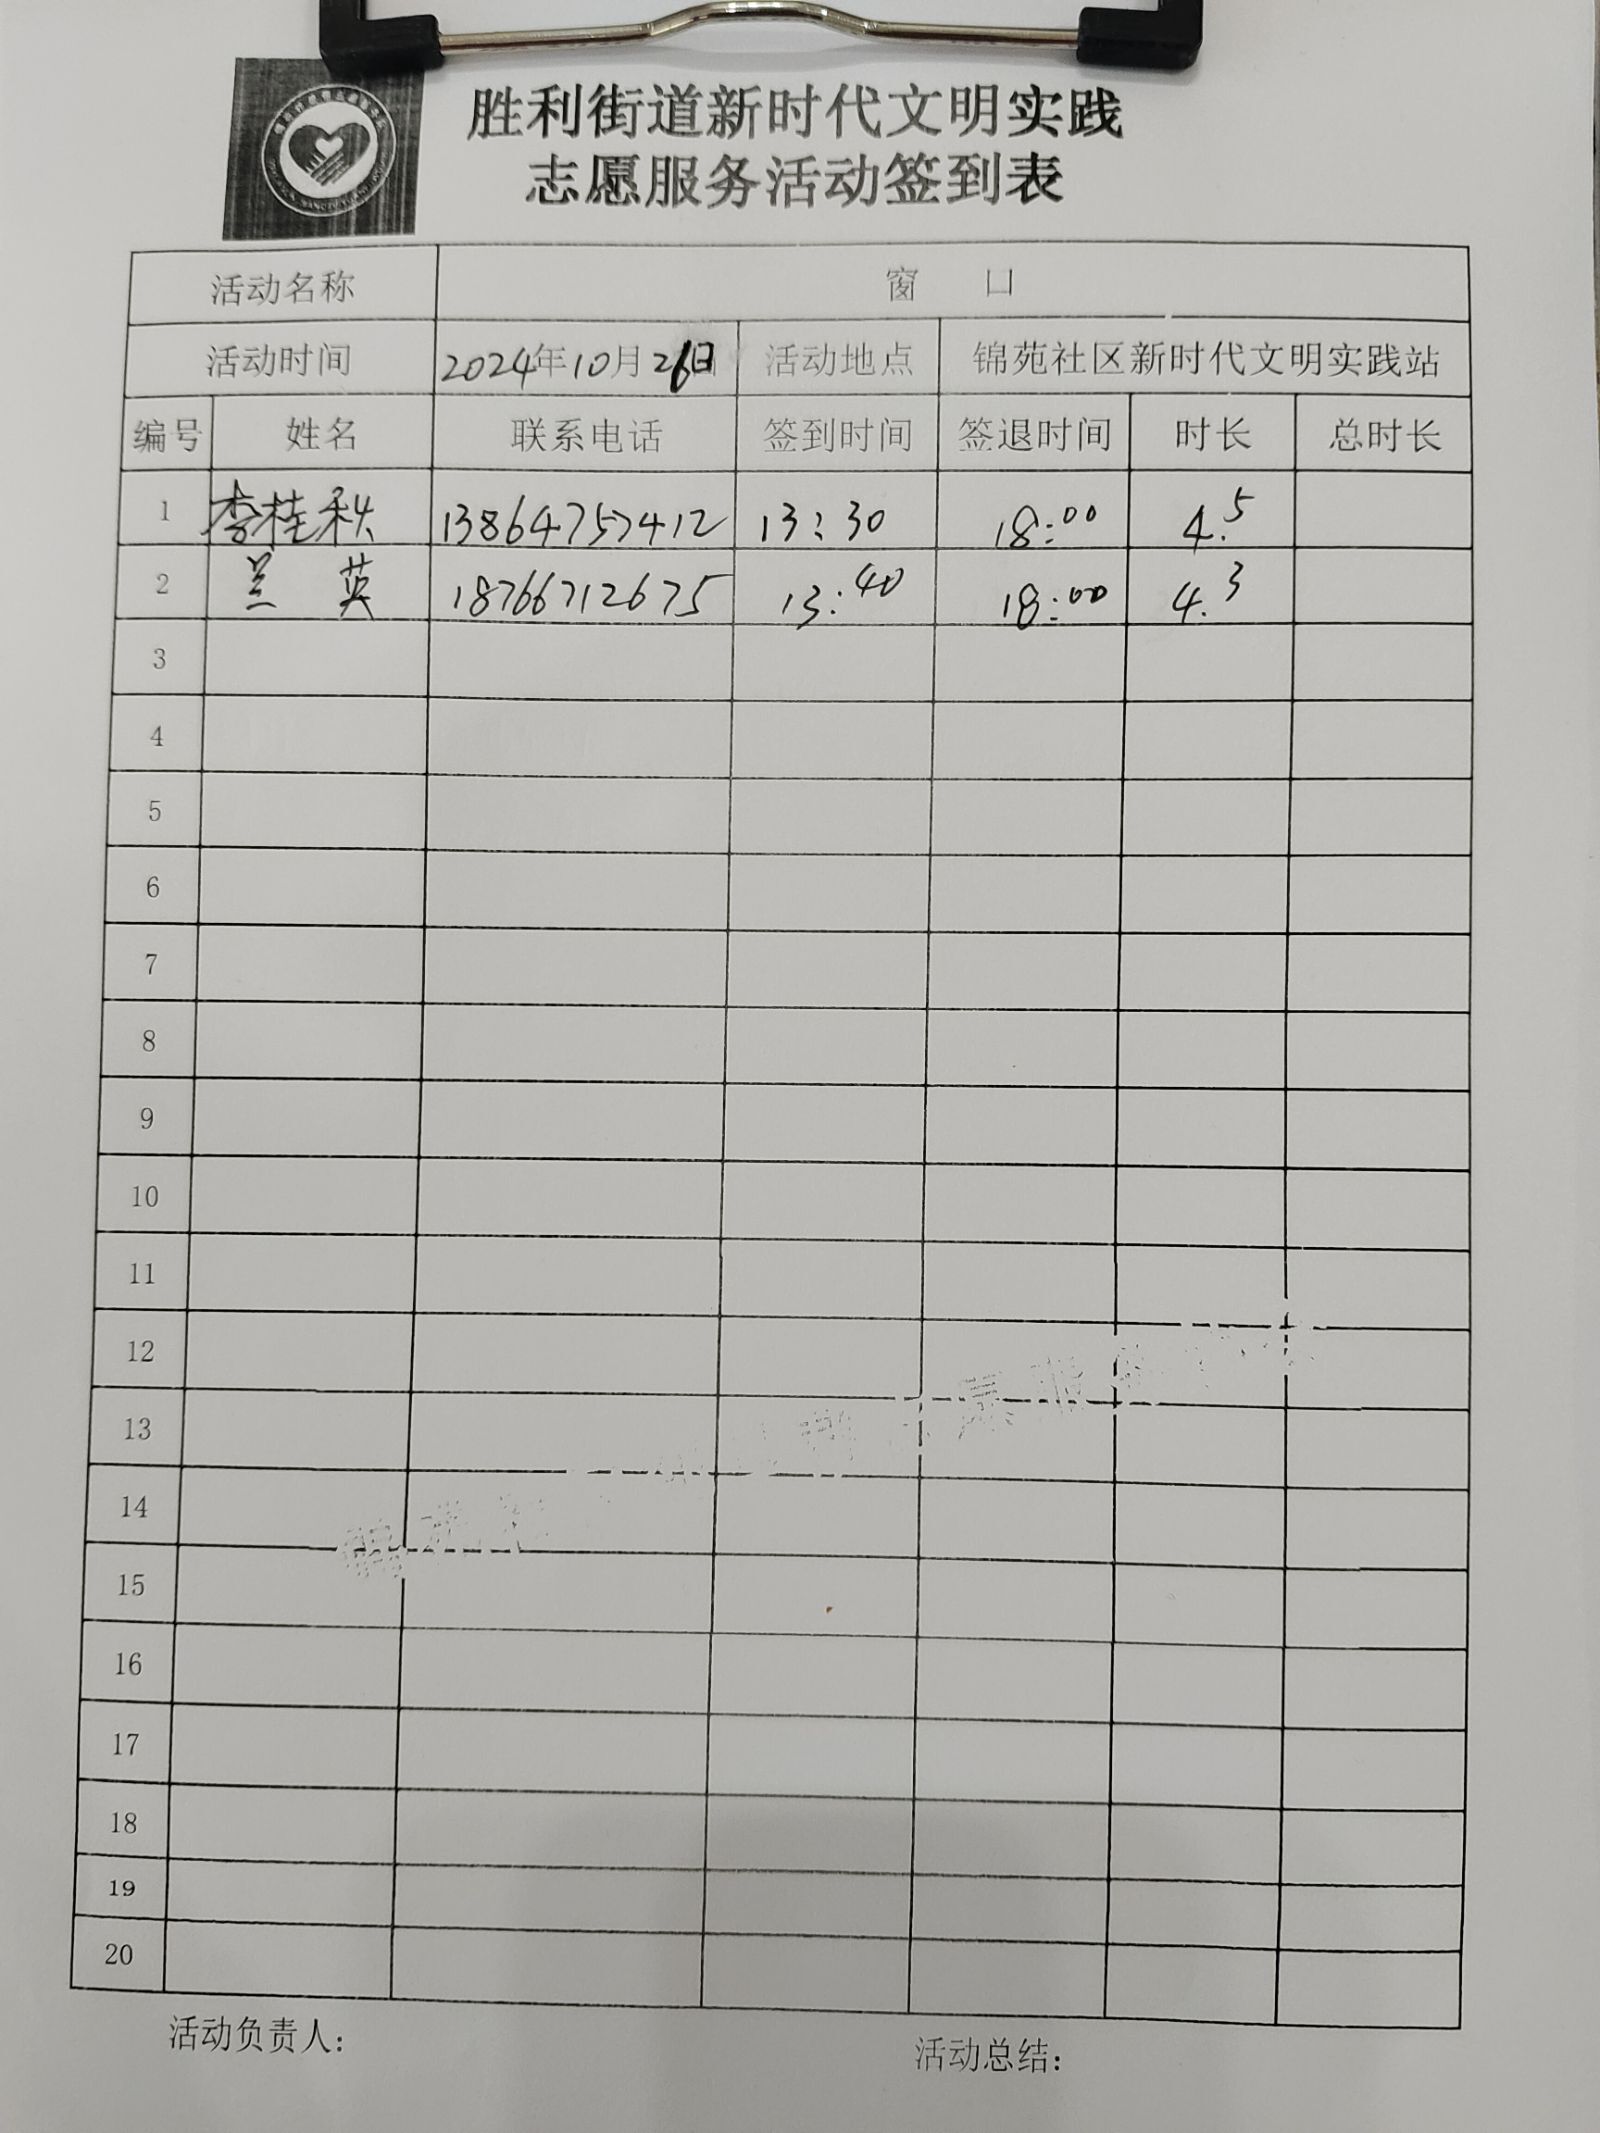 胜利街道新时代文明实践
志愿服务活动签到表
活动名称 窗 口
活动时间 2024年10月26日 活动地点 锦苑社区新时代文明实践站
编号 姓名 联系电话 签到时间 签退时间 时长 总时长
1 李桂秋 13864757412 13:30 18:00 4.5
2 兰 英 18766712675 13:40 18:00 4.3
3
4
5
6
7
8
9
10
11
12
13
14
15
16
17
18
19
20
活动负责人: 活动总结: